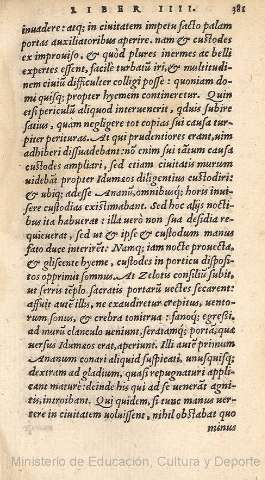 LIBER IIII. 381
inuadere: atq; in ciuitatem impetu facto palam
portas auxiliatoribus aperire. nam & custodes
ex improuiso, & quòd plures inermes ac belli
expertes essent, facilè turbari iri, & multitudi
nem ciuiũ difficulter colligi posse: quoniam do-
mi quisq; propter hyemem contineretur. Quin
etsi periculũ aliquod interuenerit, q̃duis subire
satius, quàm negligere tot copias sui causa tur-
piter perituras. At qui prudentiores erant, uim
adhiberi dissuadebant: nõ enim sui tãtum causa
custodes ampliari, sed etiam ciuitatis murum
uidebãt propter Idumæos diligentius custodiri:
& ubiq; adesse Ananũ, omnibusq; horis inui-
sere custodias existimabant. Sed hoc alijs nocti
bus ita habuerat: illa uerò non sua desidia re-
quieuerat, sed ut & ipse & custodum manus
fato duce interirẽt: Namq; iam nocte prouecta,
& gliscente hyeme, custodes in porticu disposi-
tos opprimit somnus. At Zelotis consiliũ subit,
ut serris tẽplo sacratis portarũ uectes secarent:
affuit autẽ illis, ne exaudiretur crepitus, uento-
rum sonus, & crebra tonitrua: fanoq; egressi,
ad murũ clanculo ueniunt, serratamq; portã, qua
uersus Idumæos erat, aperiunt. Illi autẽ primum
Ananum conari aliquid suspicati, unusquisq;
dextram ad gladium, quasi repugnaturi appli
cant mature: deinde his qui ad se uenerãt agni-
tis, introibant. Qui quidem, si tunc manus uer-
tere in ciuitatem uoluissent, nihil obstabat quo
minus
Ministerio de Educación, Cultura y Deporte